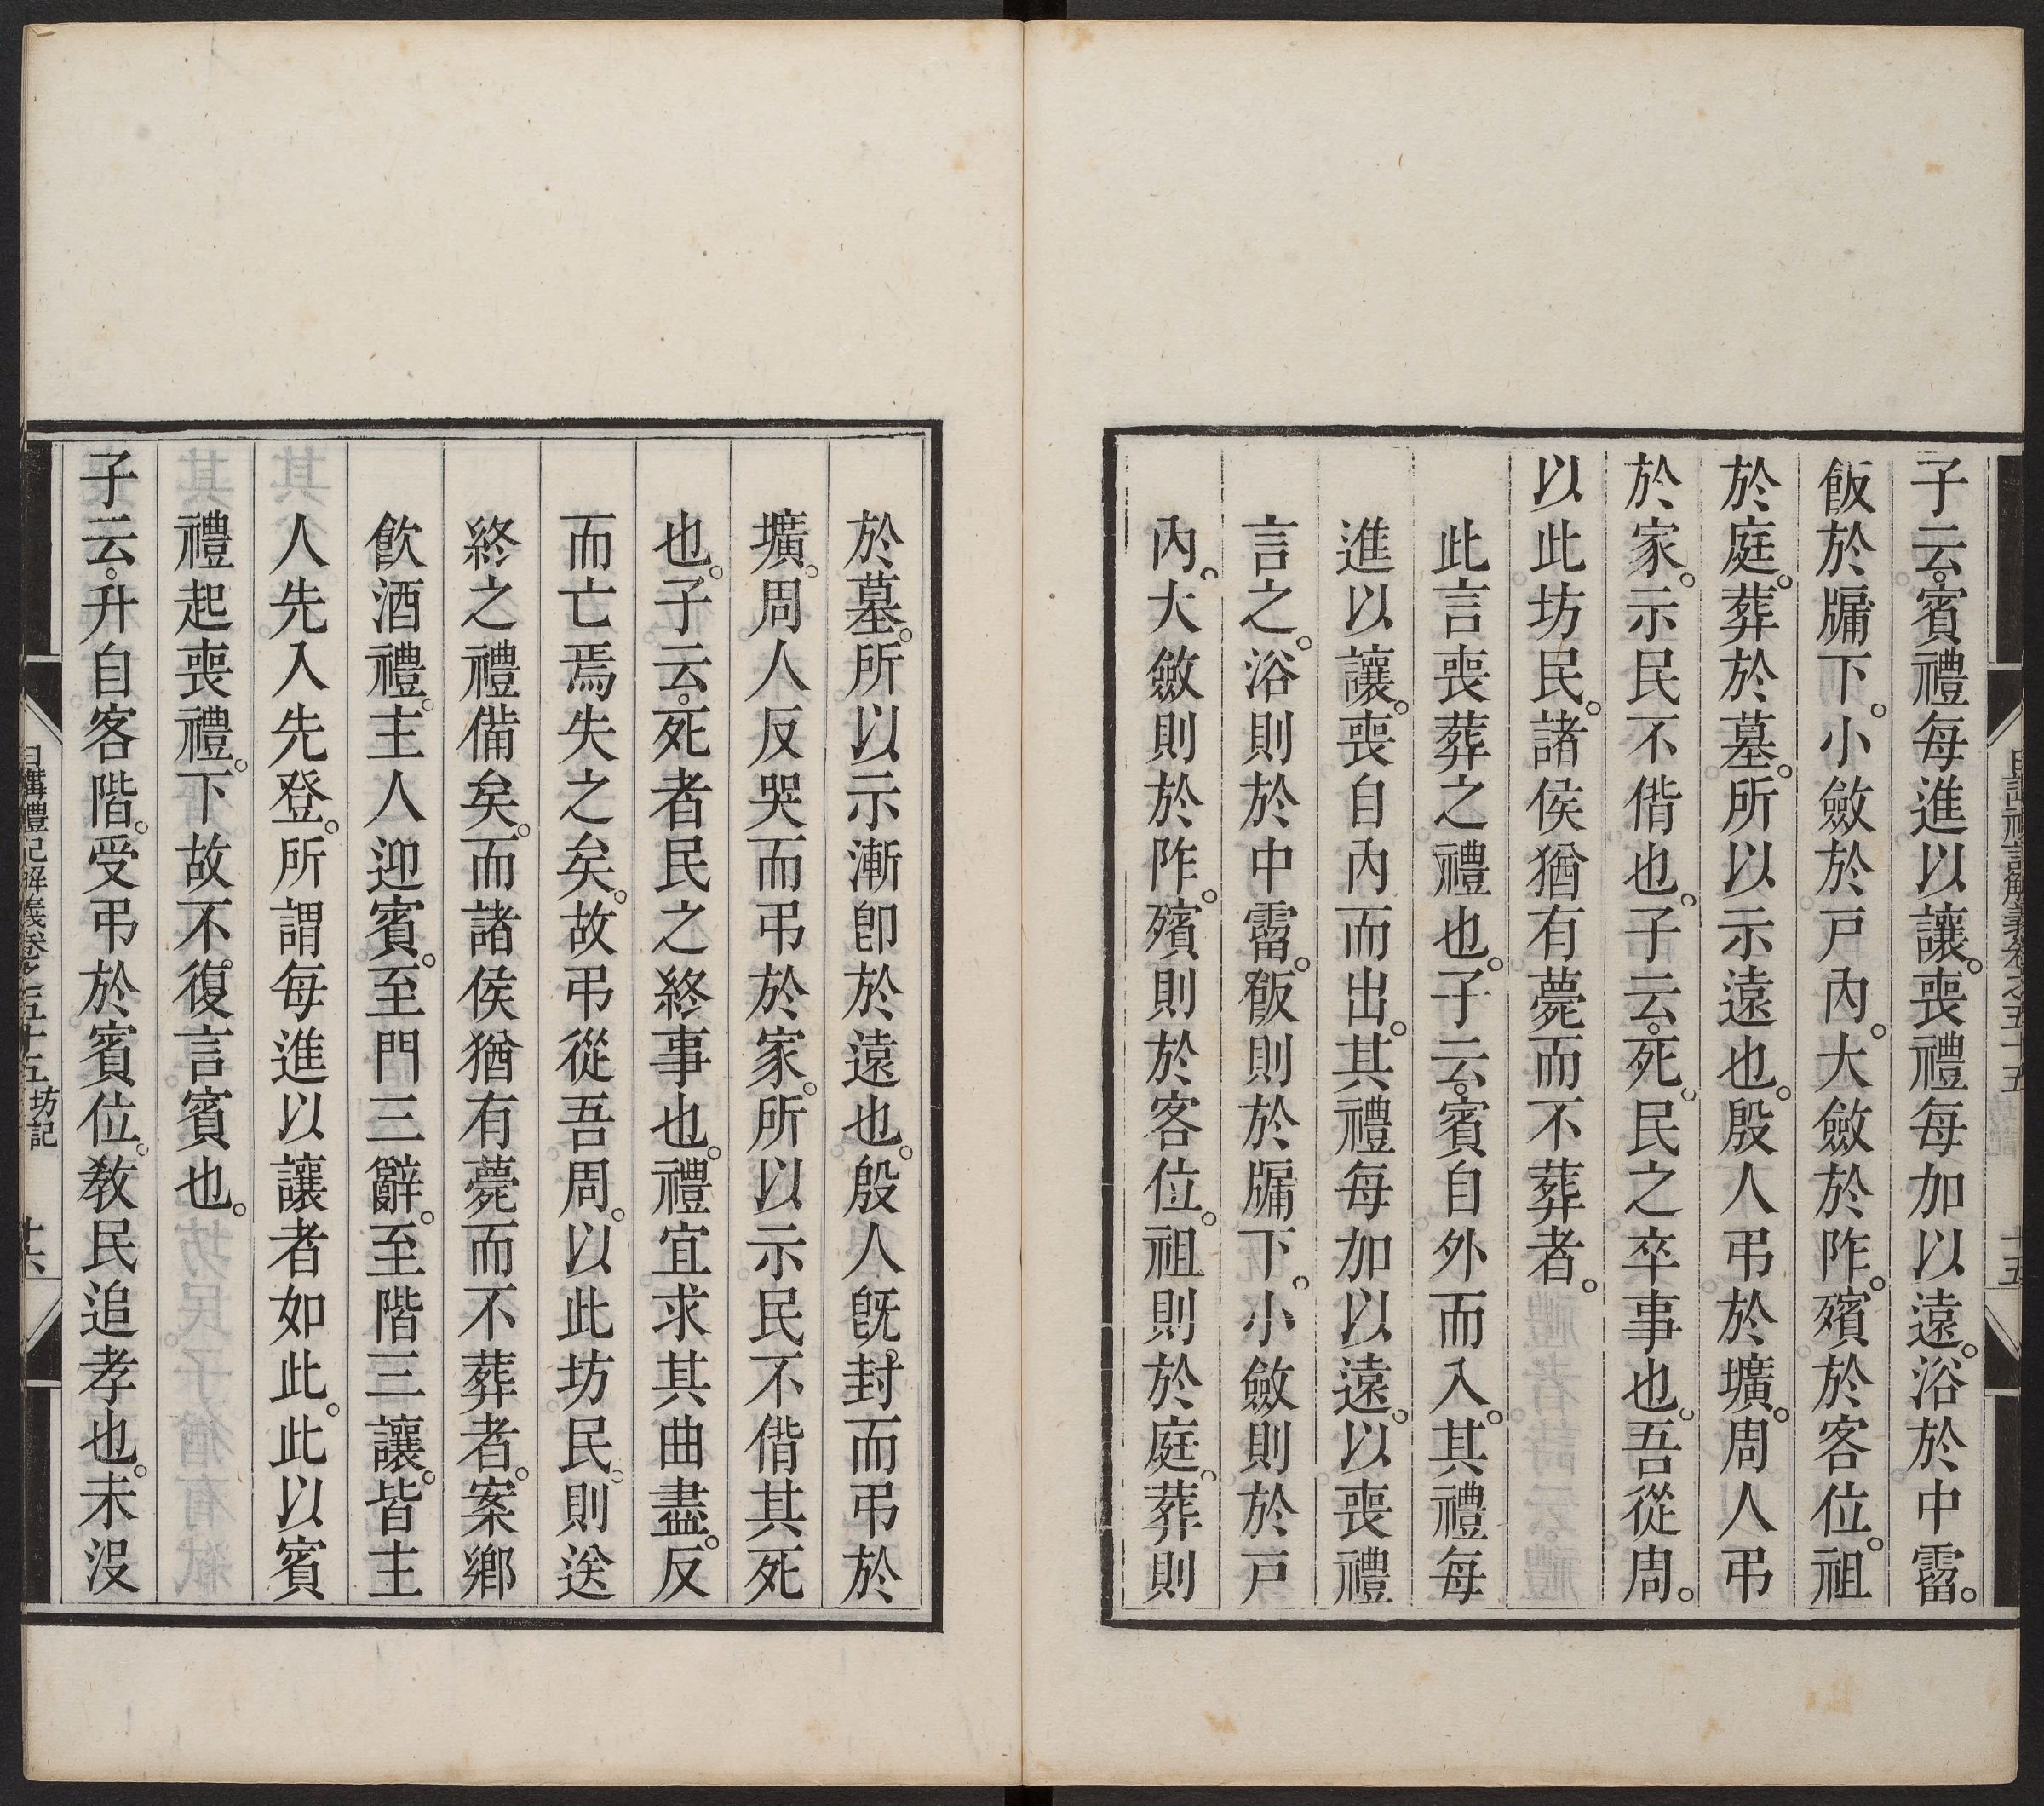 子云。賓禮每進以讓。喪禮每加以遠。浴於中霤。
飯於牖下。小斂於戶內。大斂於阼。殯於客位。祖
於庭。葬於墓。所以示遠也。殷人弔於壙。周人弔
於家。示民不偝也。子云。死。民之卒事也。吾從周。
以此坊民。諸侯猶有薨而不葬者。
此言喪葬之禮也。子云。賓自外而入。其禮每
進以讓。喪自內而出。其禮每加以遠。以喪禮
言之。浴則於中霤。飯則於牖下。小斂則於戶
內。大斂則於阼。殯則於客位。祖則於庭。葬則
於墓。所以示漸即於遠也。殷人旣。封而弔於
壙。周人反哭而弔於家。所以示民不偝其死
也。子云。死者民之終事也。禮宜求其曲盡。反
而亡焉失之矣。故弔從吾周。以此坊民。則送
終之禮備矣。而諸侯猶有薨而不葬者。案鄉
飲酒禮。主人迎賓。至門三辭。至階三讓。皆主
人先入先登。所謂每進以讓者如此。此以賓
禮起喪禮。下故不。復言賓也。
子云。升自客階。受弔於賓位。敎民追孝也。未沒
日講禮記解義卷之五十五 坊記 十六